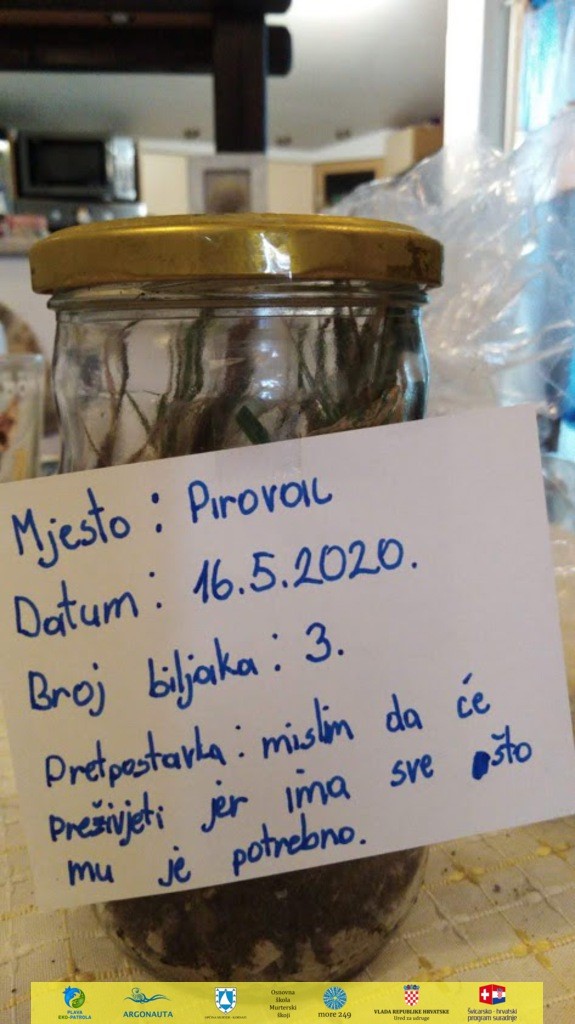 Mjesto : Pirovac
Datum : 16.5.2020.
Broj biljaka : 3.
Pretpostavka : mislim da će
preživjeti jer ima sve što
mu je potrebno.
PLAVA
EKO-PATROLA
ARGONAUTA
Osnovna
škola
Murterski
škoji
more 249
VLADA REPUBLIKE HRVATSKE
Ured za udruge
Švicarsko - hrvatski
program suradnje